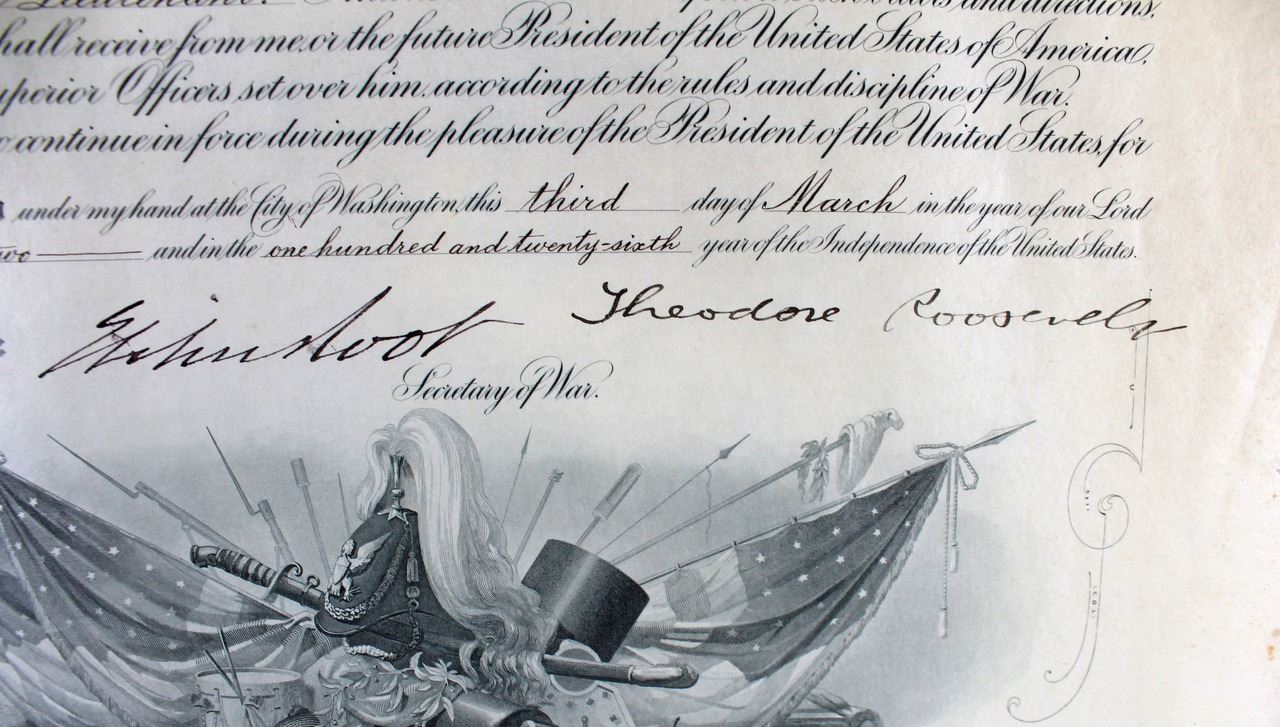 Lieutenant. and directions.
hall receive from me, or the future President of the United States of America,
uperior Officers set over him, according to the rules and discipline of War.
o continue in force during the pleasure of the President of the United States, for
under my hand at the City of Washington, this third day of March in the year of our Lord
two and in the one hundred and twenty-sixth year of the Independence of the United States.
Theodore Roosevelt
Elihu Root
Secretary of War.